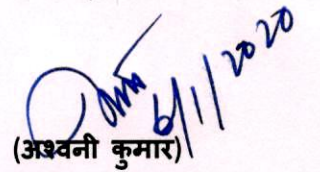 6/1/2020
(अश्वनी कुमार)